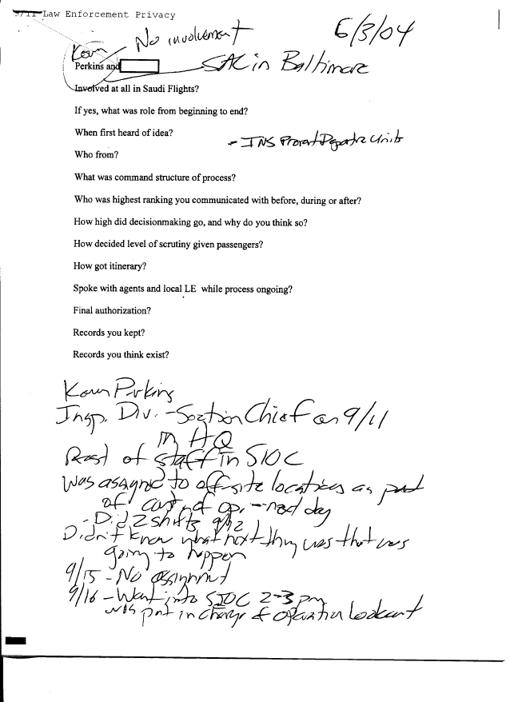 9/11 Law Enforcement Privacy
6/3/04
No involvement
Kevin
Perkins and
SAC in Baltimore
Involved at all in Saudi Flights?
If yes, what was role from beginning to end?
When first heard of idea?
- INS Units
Who from?
What was command structure of process?
Who was highest ranking you communicated with before, during or after?
How high did decisionmaking go, and why do you think so?
How decided level of scrutiny given passengers?
How got itinerary?
Spoke with agents and local LE while process ongoing?
Final authorization?
Records you kept?
Records you think exist?
Kevin Perkins
Insp. Div. - Section Chief on 9/11
in HQ
Rest of staff in SIOC
Was assigned to off-site locations as part
of op. - next day
- Did 2 shifts 9/12
Didn't know what next thing was that was
going to happen
9/15 - No assignment
9/16 - Went into SIOC 2-3 pm
was put in charge of operation lookout